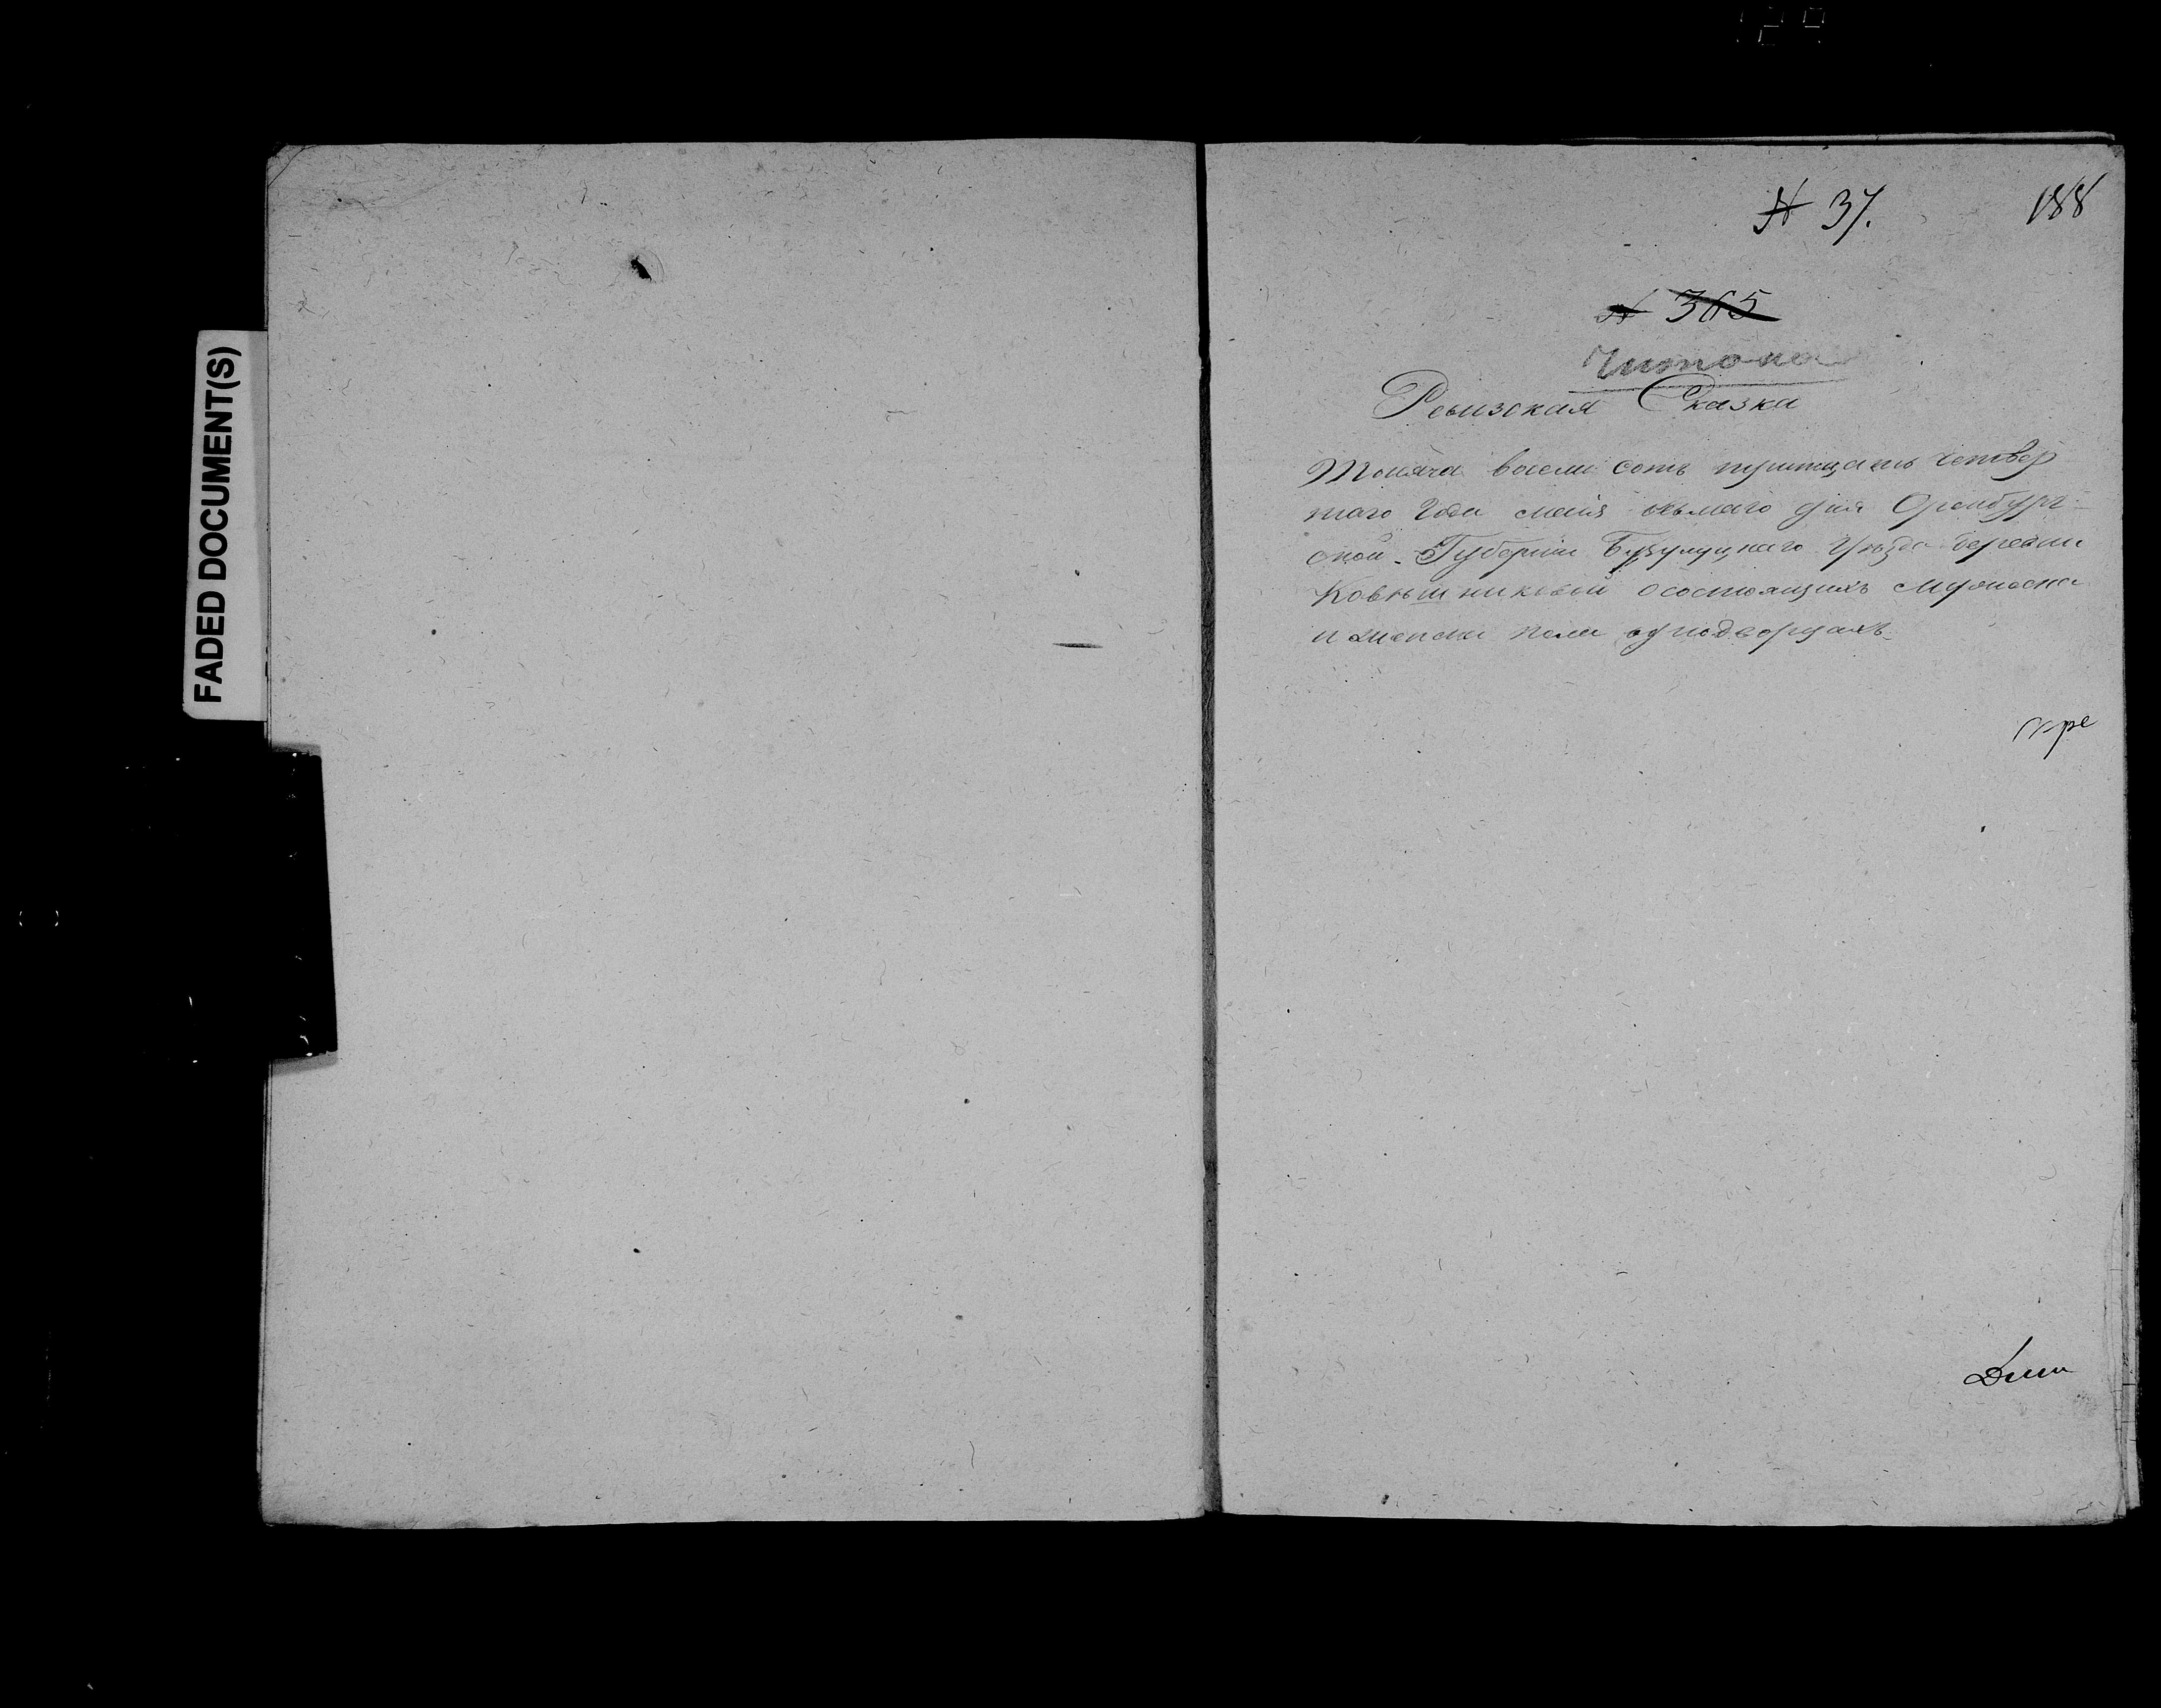 FADED DOCUMENT(S)
№ 37. 188
№ 365
Читана
Ревизская Сказка
Тысяча восемь сотъ тритцать четвер
таго Года маия осьмаго дня Оренбург-
ской Губернии Бузулуцкаго Уезда деревни
Ковышниковой осостоящихъ мужеска
и женска пола однодворцахъ.